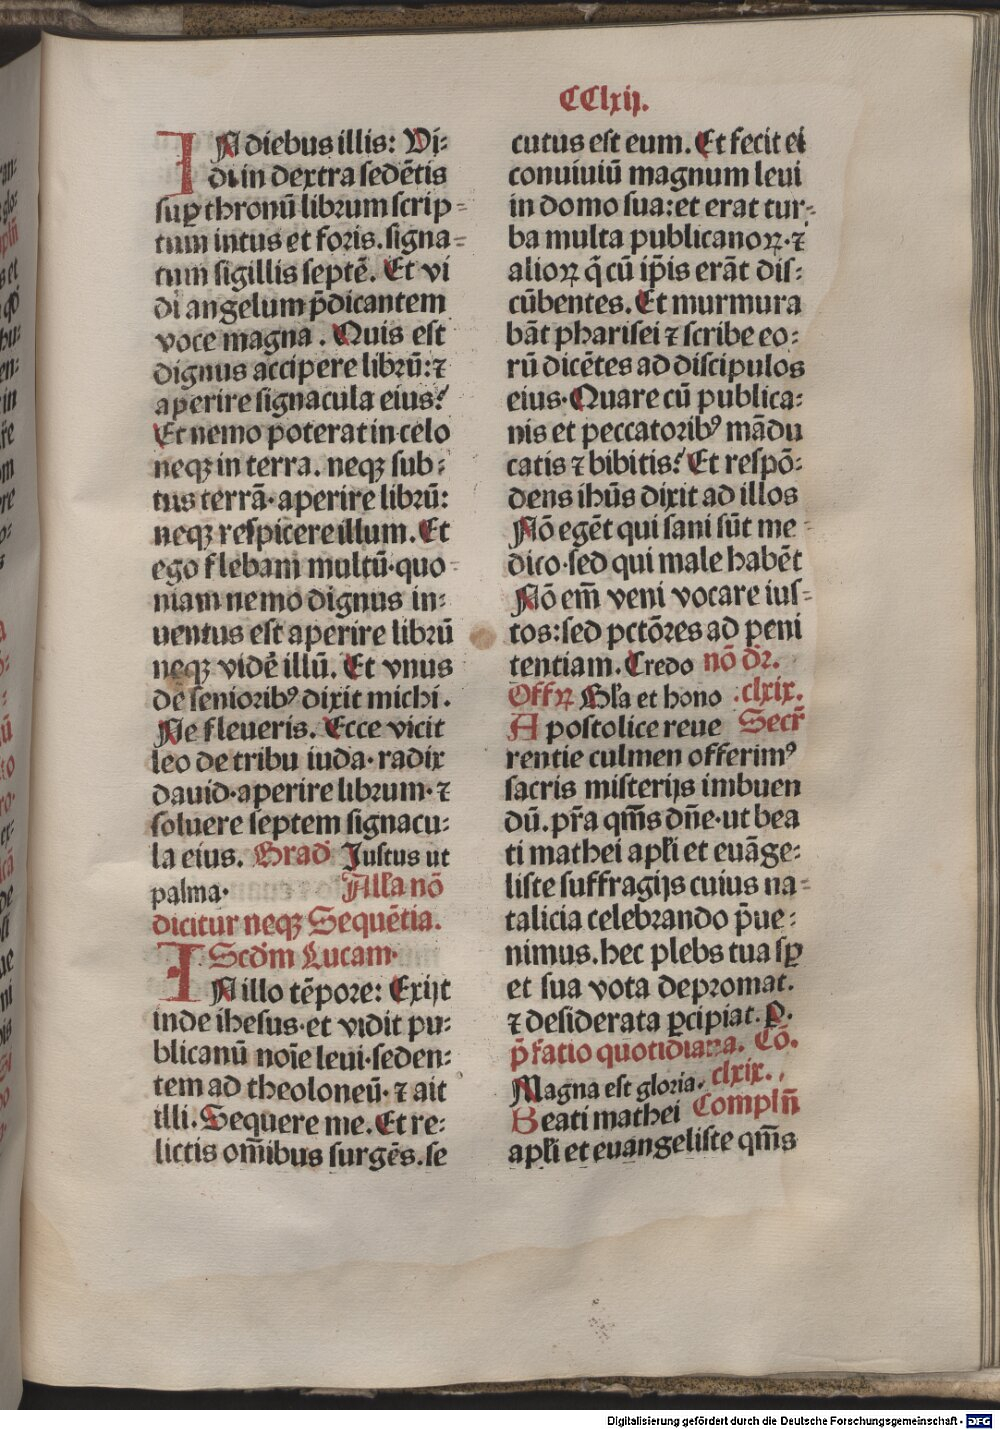 CClxij.
IN diebus illis: Vi-
di in dextra sedētis
suꝑ thronū librum scrip-
tum intus et foris. signa-
tum sigillis septē. Et vi
di angelum p̄dicantem
voce magna. Quis est
dignus accipere librū: ⁊
aperire signacula eius?
Et nemo poterat in celo
neqꝫ in terra. neqꝫ sub-
tus terrā. aperire librū:
neqꝫ respicere illum. Et
ego flebam multū. quo-
niam nemo dignus in-
uentus est aperire librū
neqꝫ vidē illū. Et vnus
de senioribꝰ dixit michi.
Ne fleueris. Ecce vicit
leo de tribu iuda. radix
dauid. aperire librum. ⁊
soluere septem signacu-
la eius. Grad̄ Justus ut
palma. Alła nō
dicitur neqꝫ Sequētia.
Scd̄m Lucam.
IN illo tēpore: Exijt
inde ihesus. et vidit pu-
blicanū noīe leui. seden-
tem ad theoloneū. ⁊ ait
illi. Sequere me. Et re-
lictis om̄ibus surgēs. se
cutus est eum. Et fecit ei
conuiuiū magnum leui
in domo sua: et erat tur-
ba multa publicanoꝝ. ⁊
alioꝝ q̄ cū ip̄is erāt dis-
cūbentes. Et murmura
bāt pharisei ⁊ scribe eo-
rū dicētes ad discipulos
eius. Quare cū publica-
nis et peccatoribꝰ mādu
catis ⁊ bibitis? Et respō-
dens ihūs dixit ad illos
Nō egēt qui sani sūt me-
dico. sed qui male habēt
Nō em̄ veni vocare ius-
tos: sed pctōres ad peni
tentiam. Credo nō dr̄.
Offꝝ Gła et hono .clxix.
Apostolice reue Secr̄
rentie culmen offerimꝰ
sacris misterijs imbuen
dū. pr̄a qm̄s dn̄e. ut bea
ti mathei apłi et euāge-
liste suffragijs cuius na-
talicia celebrando p̄ue-
nimus. hec plebs tua sꝑ
et sua vota depromat.
⁊ desiderata ꝑcipiat. ꝑ.
p̄fatio quotidiana. Cō.
Magna est gloria. clxix.
Beati mathei Compln̄
apłi et euangeliste qm̄s
Digitalisierung gefördert durch die Deutsche Forschungsgemeinschaft - DFG